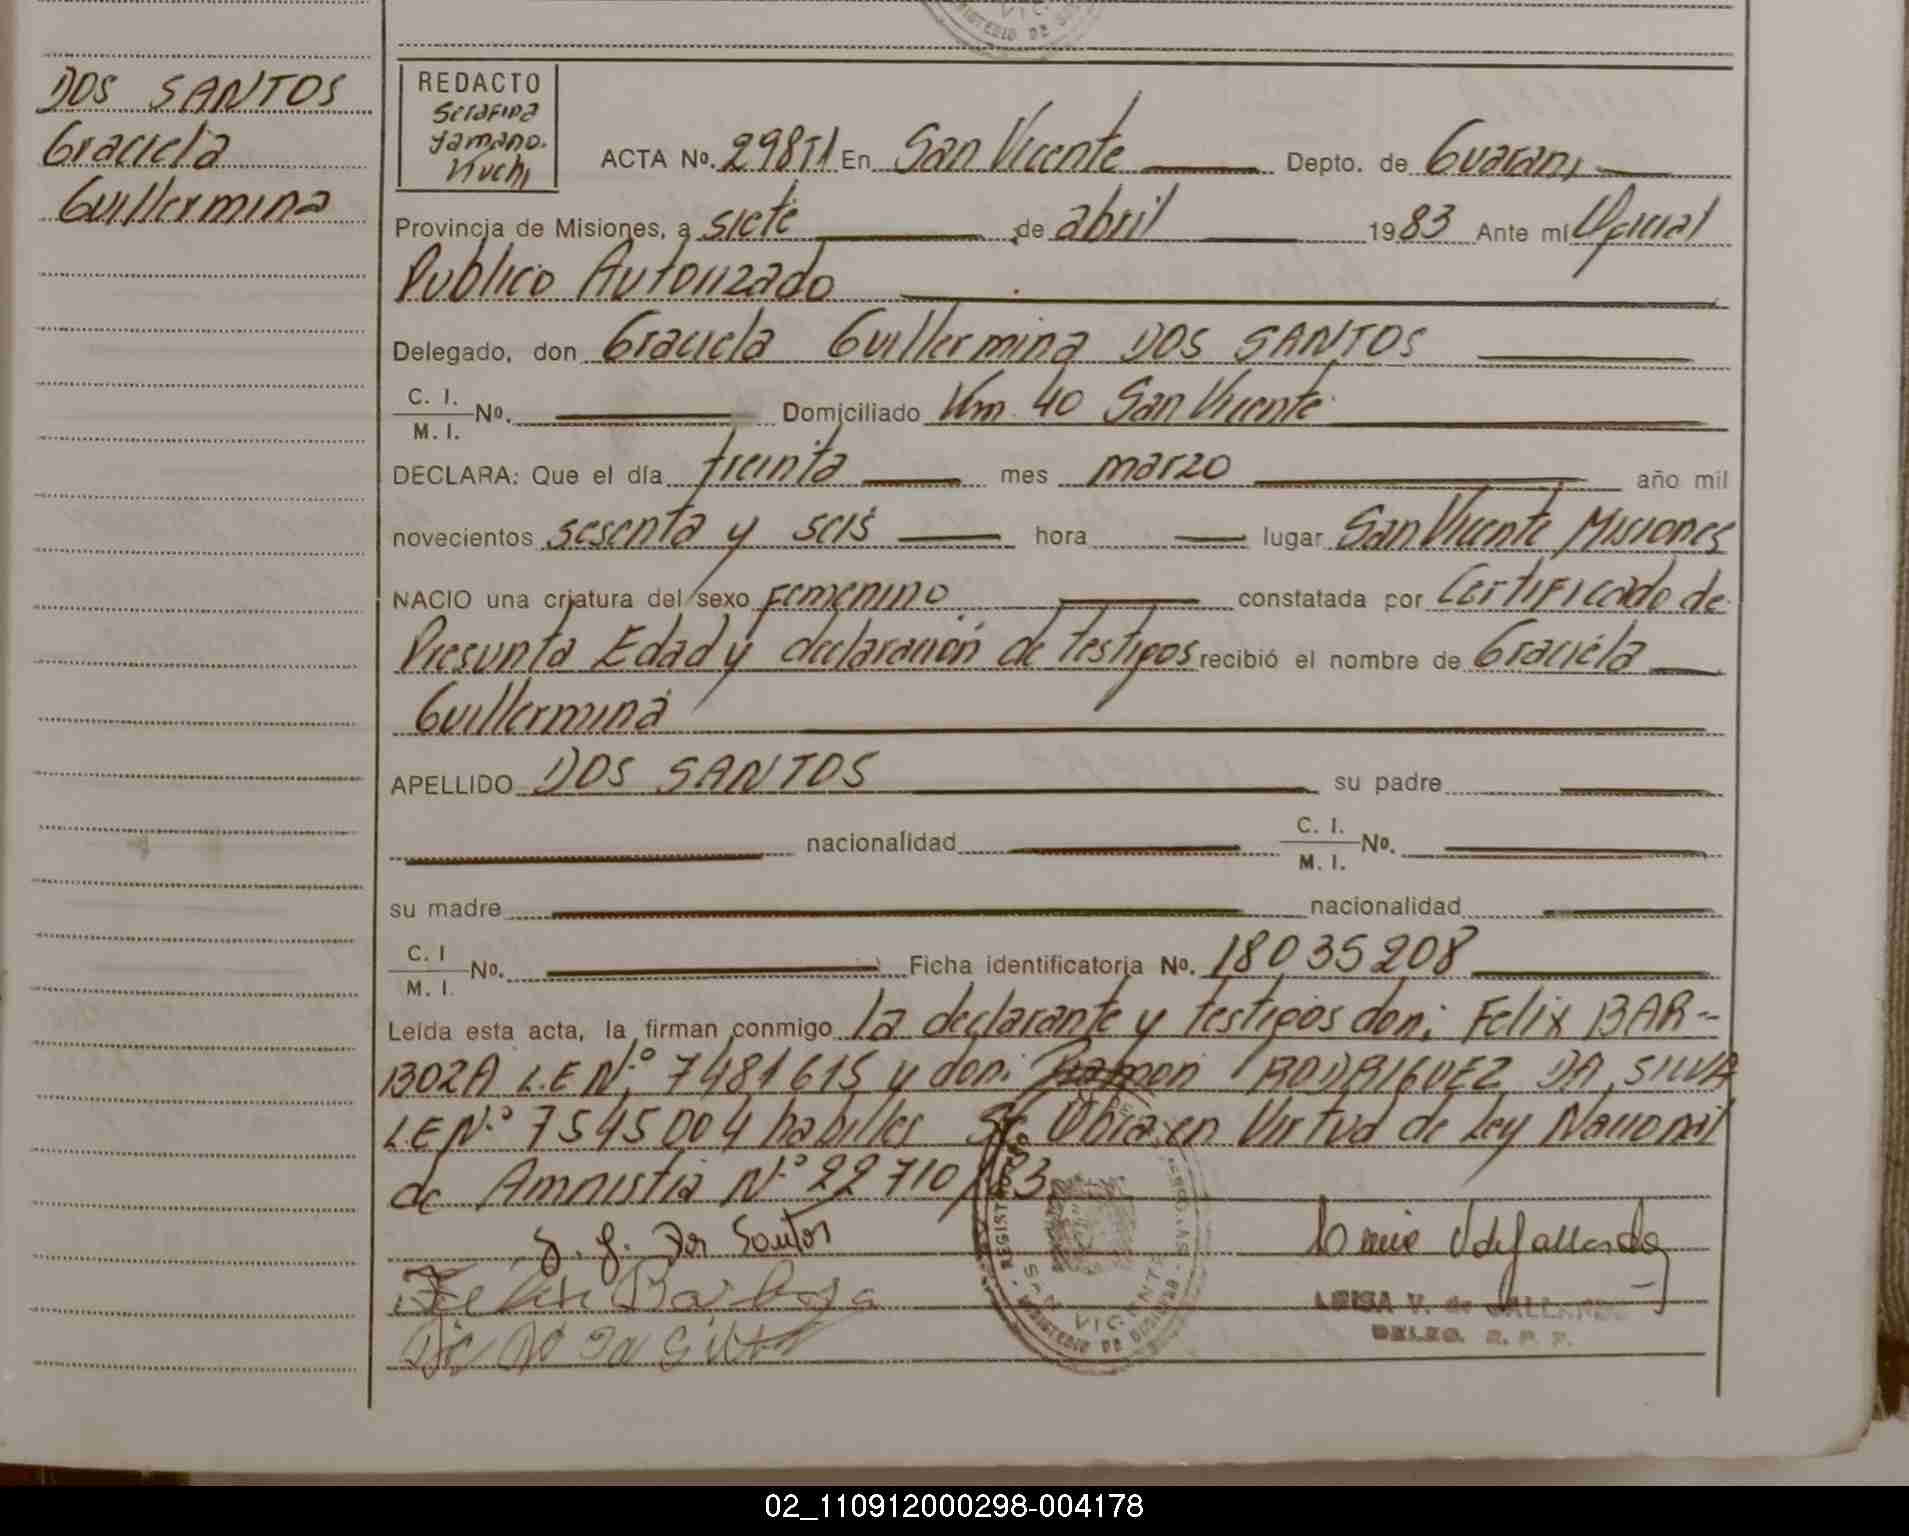 DOS SANTOS
Graciela
Guillermina
REDACTO
Serafina
Yamano.
Kuchi
ACTA No. 298T1 En San Vicente Depto. de Guarani
Provincia de Misiones, a siete de abril 1983 Ante mi Oficial
Publico Autorizado
Delegado, don Graciela Guillermina DOS SANTOS
C. I. / M. I. No. Domiciliado Km 40 San Vicente
DECLARA: Que el día treinta mes marzo año mil
novecientos sesenta y seis hora lugar San Vicente Misiones
NACIO una criatura del sexo Femenino constatada por Certificado de
Presunta Edad y declaración de testigos recibió el nombre de Graciela
Guillermina
APELLIDO DOS SANTOS su padre
nacionalidad C. I. / M. I. No.
su madre nacionalidad
C. I / M. I. No. Ficha identificatoria No. 18035208
Leída esta acta, la firman conmigo la declarante y testigos don: Felix BAR-
BOZA L.E N.° 7481615 y don: Ramon RODRIGUEZ DA SILVA
L E N.° 7545004 habiles Se Obra en Virtud de Ley Nacional
de Amnistia N.° 22710/83
G. G. Dos Santos
Felix Barboza
LUISA V. de GALLARDO
DELEG. R. P. P.
SAN VICENTE
MINISTERIO DE
02_110912000298-004178